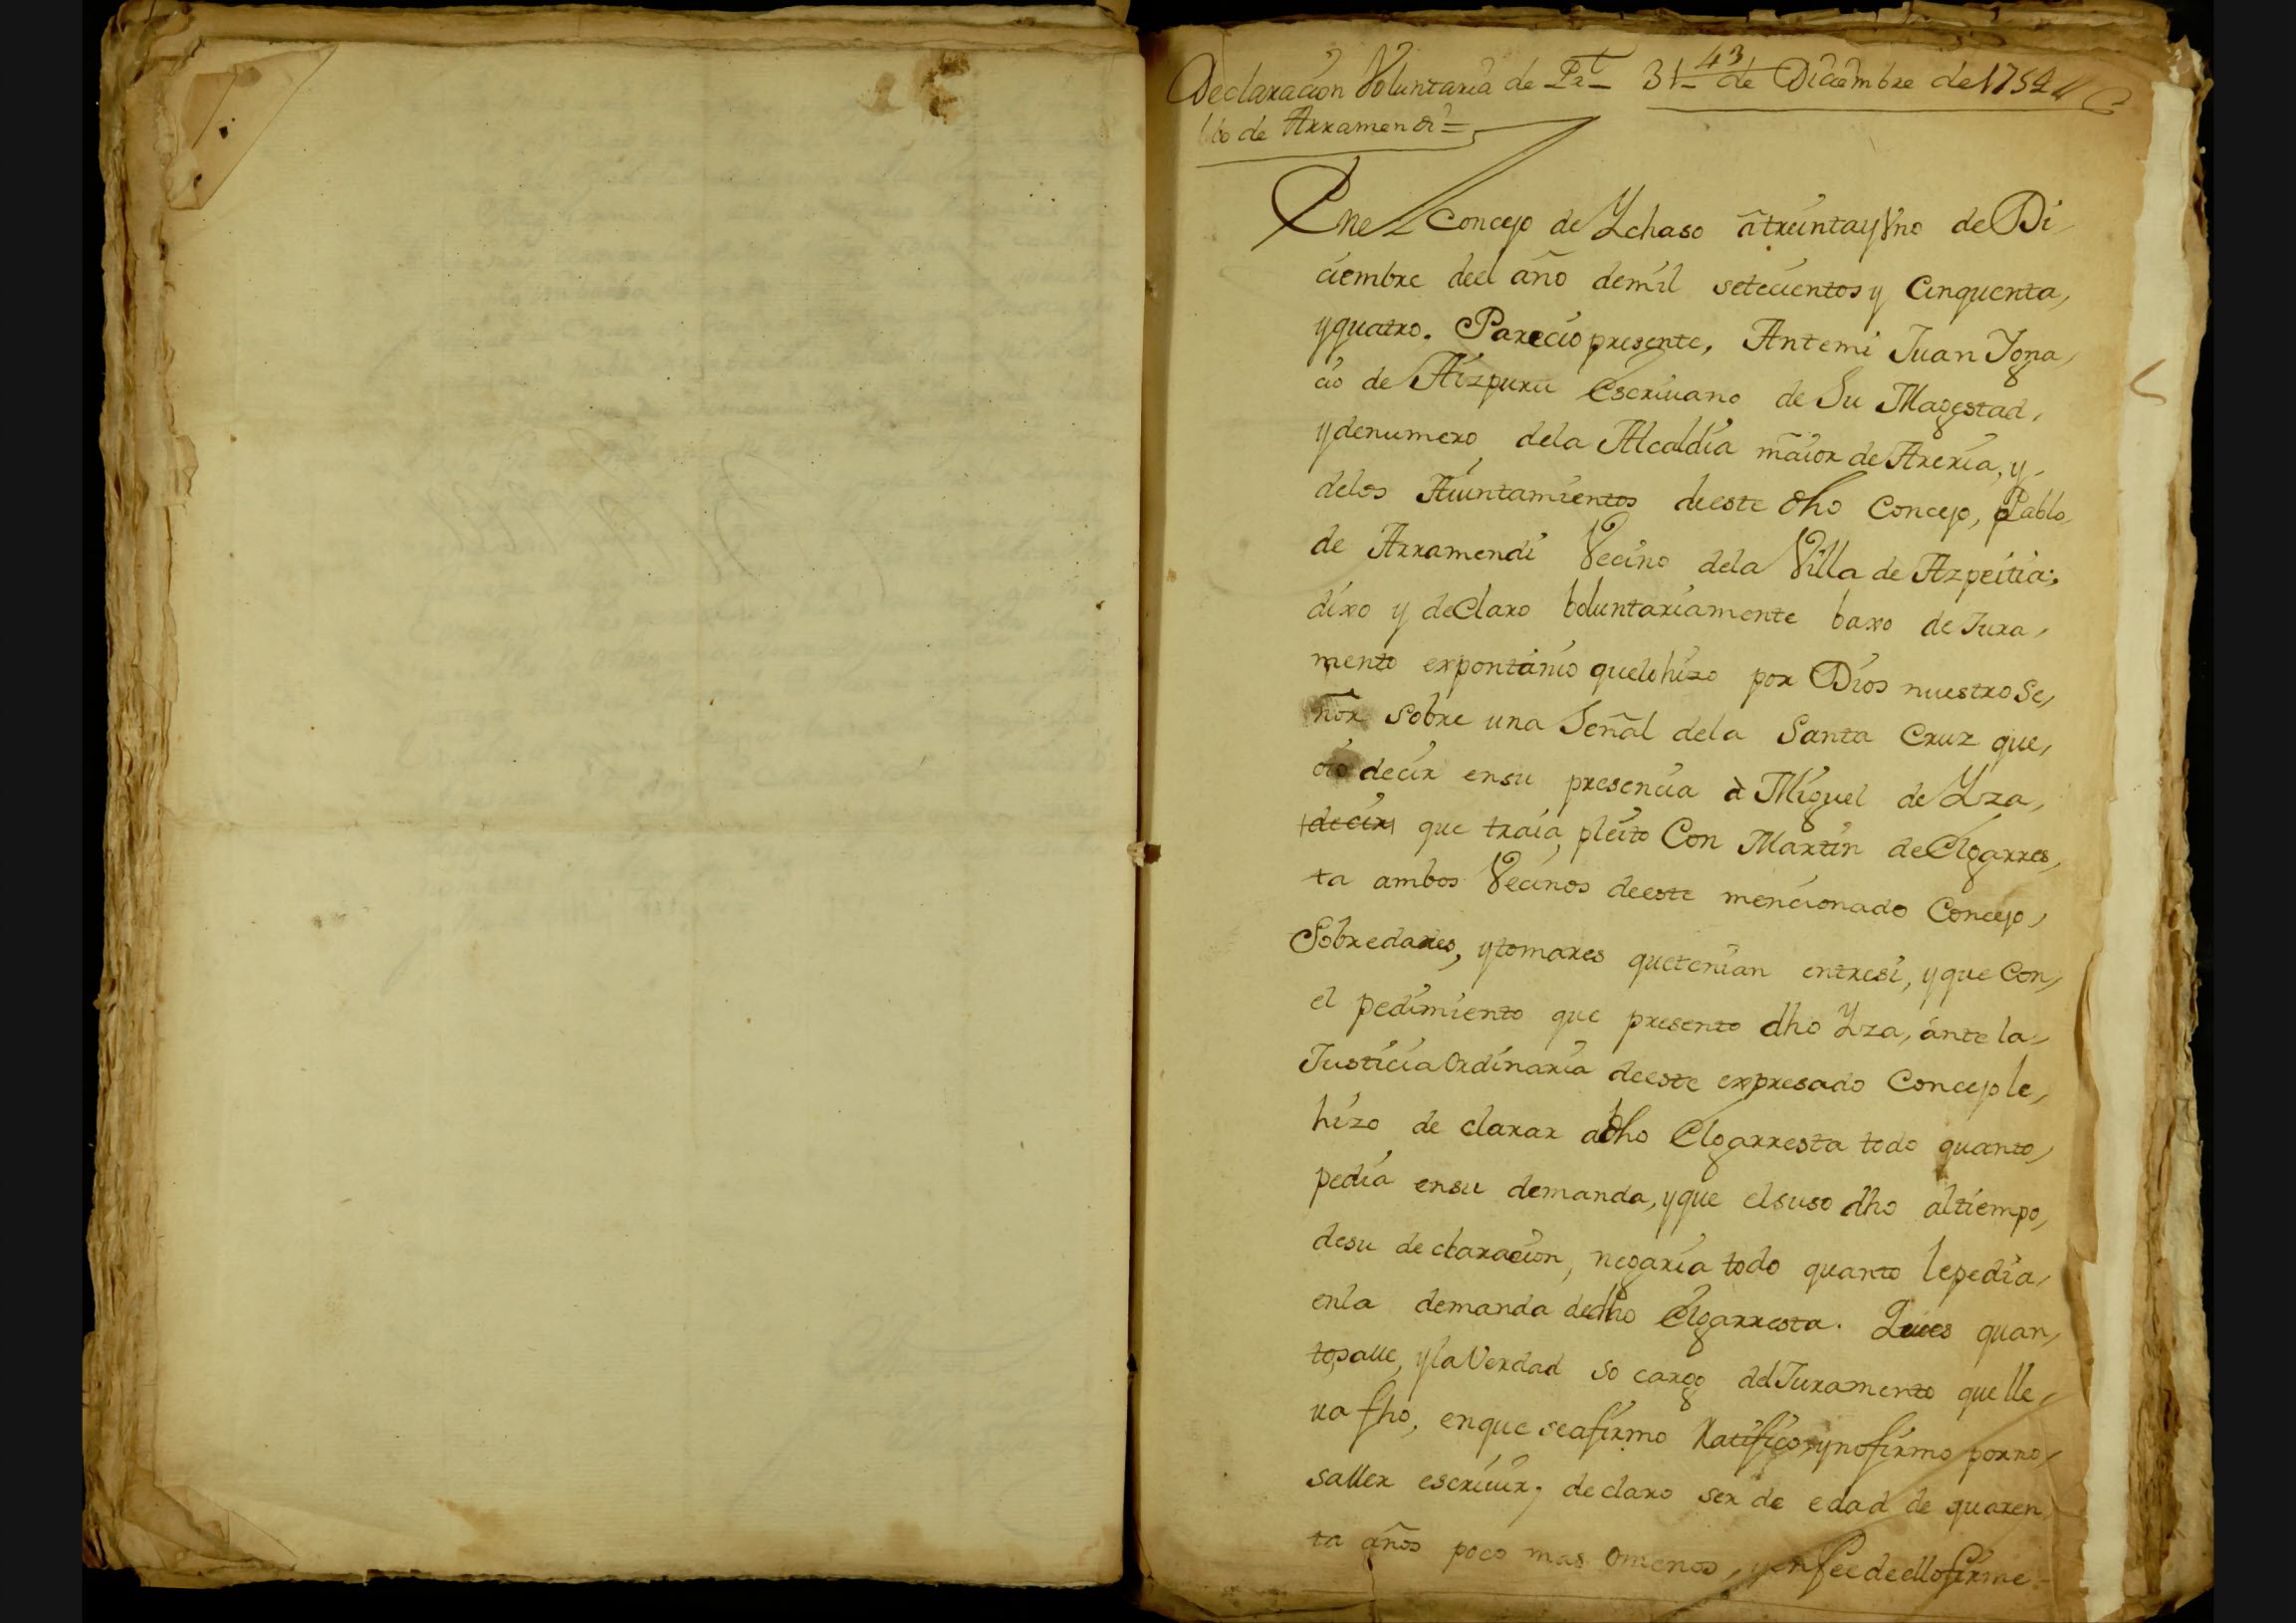 43
Declaracion Voluntaria de 31 de Diciembre de 1754
de Arramendi =
En el Concejo de Ychaso a treinta y Vno de Di
ciembre deel año de mil setecientos y Cinquenta,
y quatro. Parecio presente, Antemi Juan Ygna,
cio de Aizpuru Escriuano de Su Magestad,
y denumero dela Alcaldia maior de Areria, y
delos Aiuntamientos deeste dho Concejo, Pablo
de Arramendi Vecino dela Villa de Azpeitia;
dixo y deClaro boluntariamente baxo de Jura,
mento expontanio quelo hizo por Dios nuestro Se,
ñor sobre una Señal dela Santa Cruz que,
oio decir ensu presencia à Miguel de Yza,
decir que traia pleito Con Martin de Elgarres,
ta ambos Vecinos deeste mencionado Concejo,
Sobredares, y tomares quetenian entresi, y que Con,
el pedimiento que presento dho Yza, ante la
Justicia Ordinaria deeste expresado Concejo le,
hizo de clarar adho Elgarresta todo quanto,
pedia ensu demanda, y que elsuso dho altiempo,
desu de claracion, negaria todo quanto lepedia,
enla demanda dedho Elgarresta. Quees quan,
tosaue, y la Verdad so cargo del Juramento que lle,
ua fho, enque seafirmo Ratifico, y nofirmo porno,
sauer escriuir; declaro ser de edad de quaren
ta años poco mas omenos, y enfee deellofirme